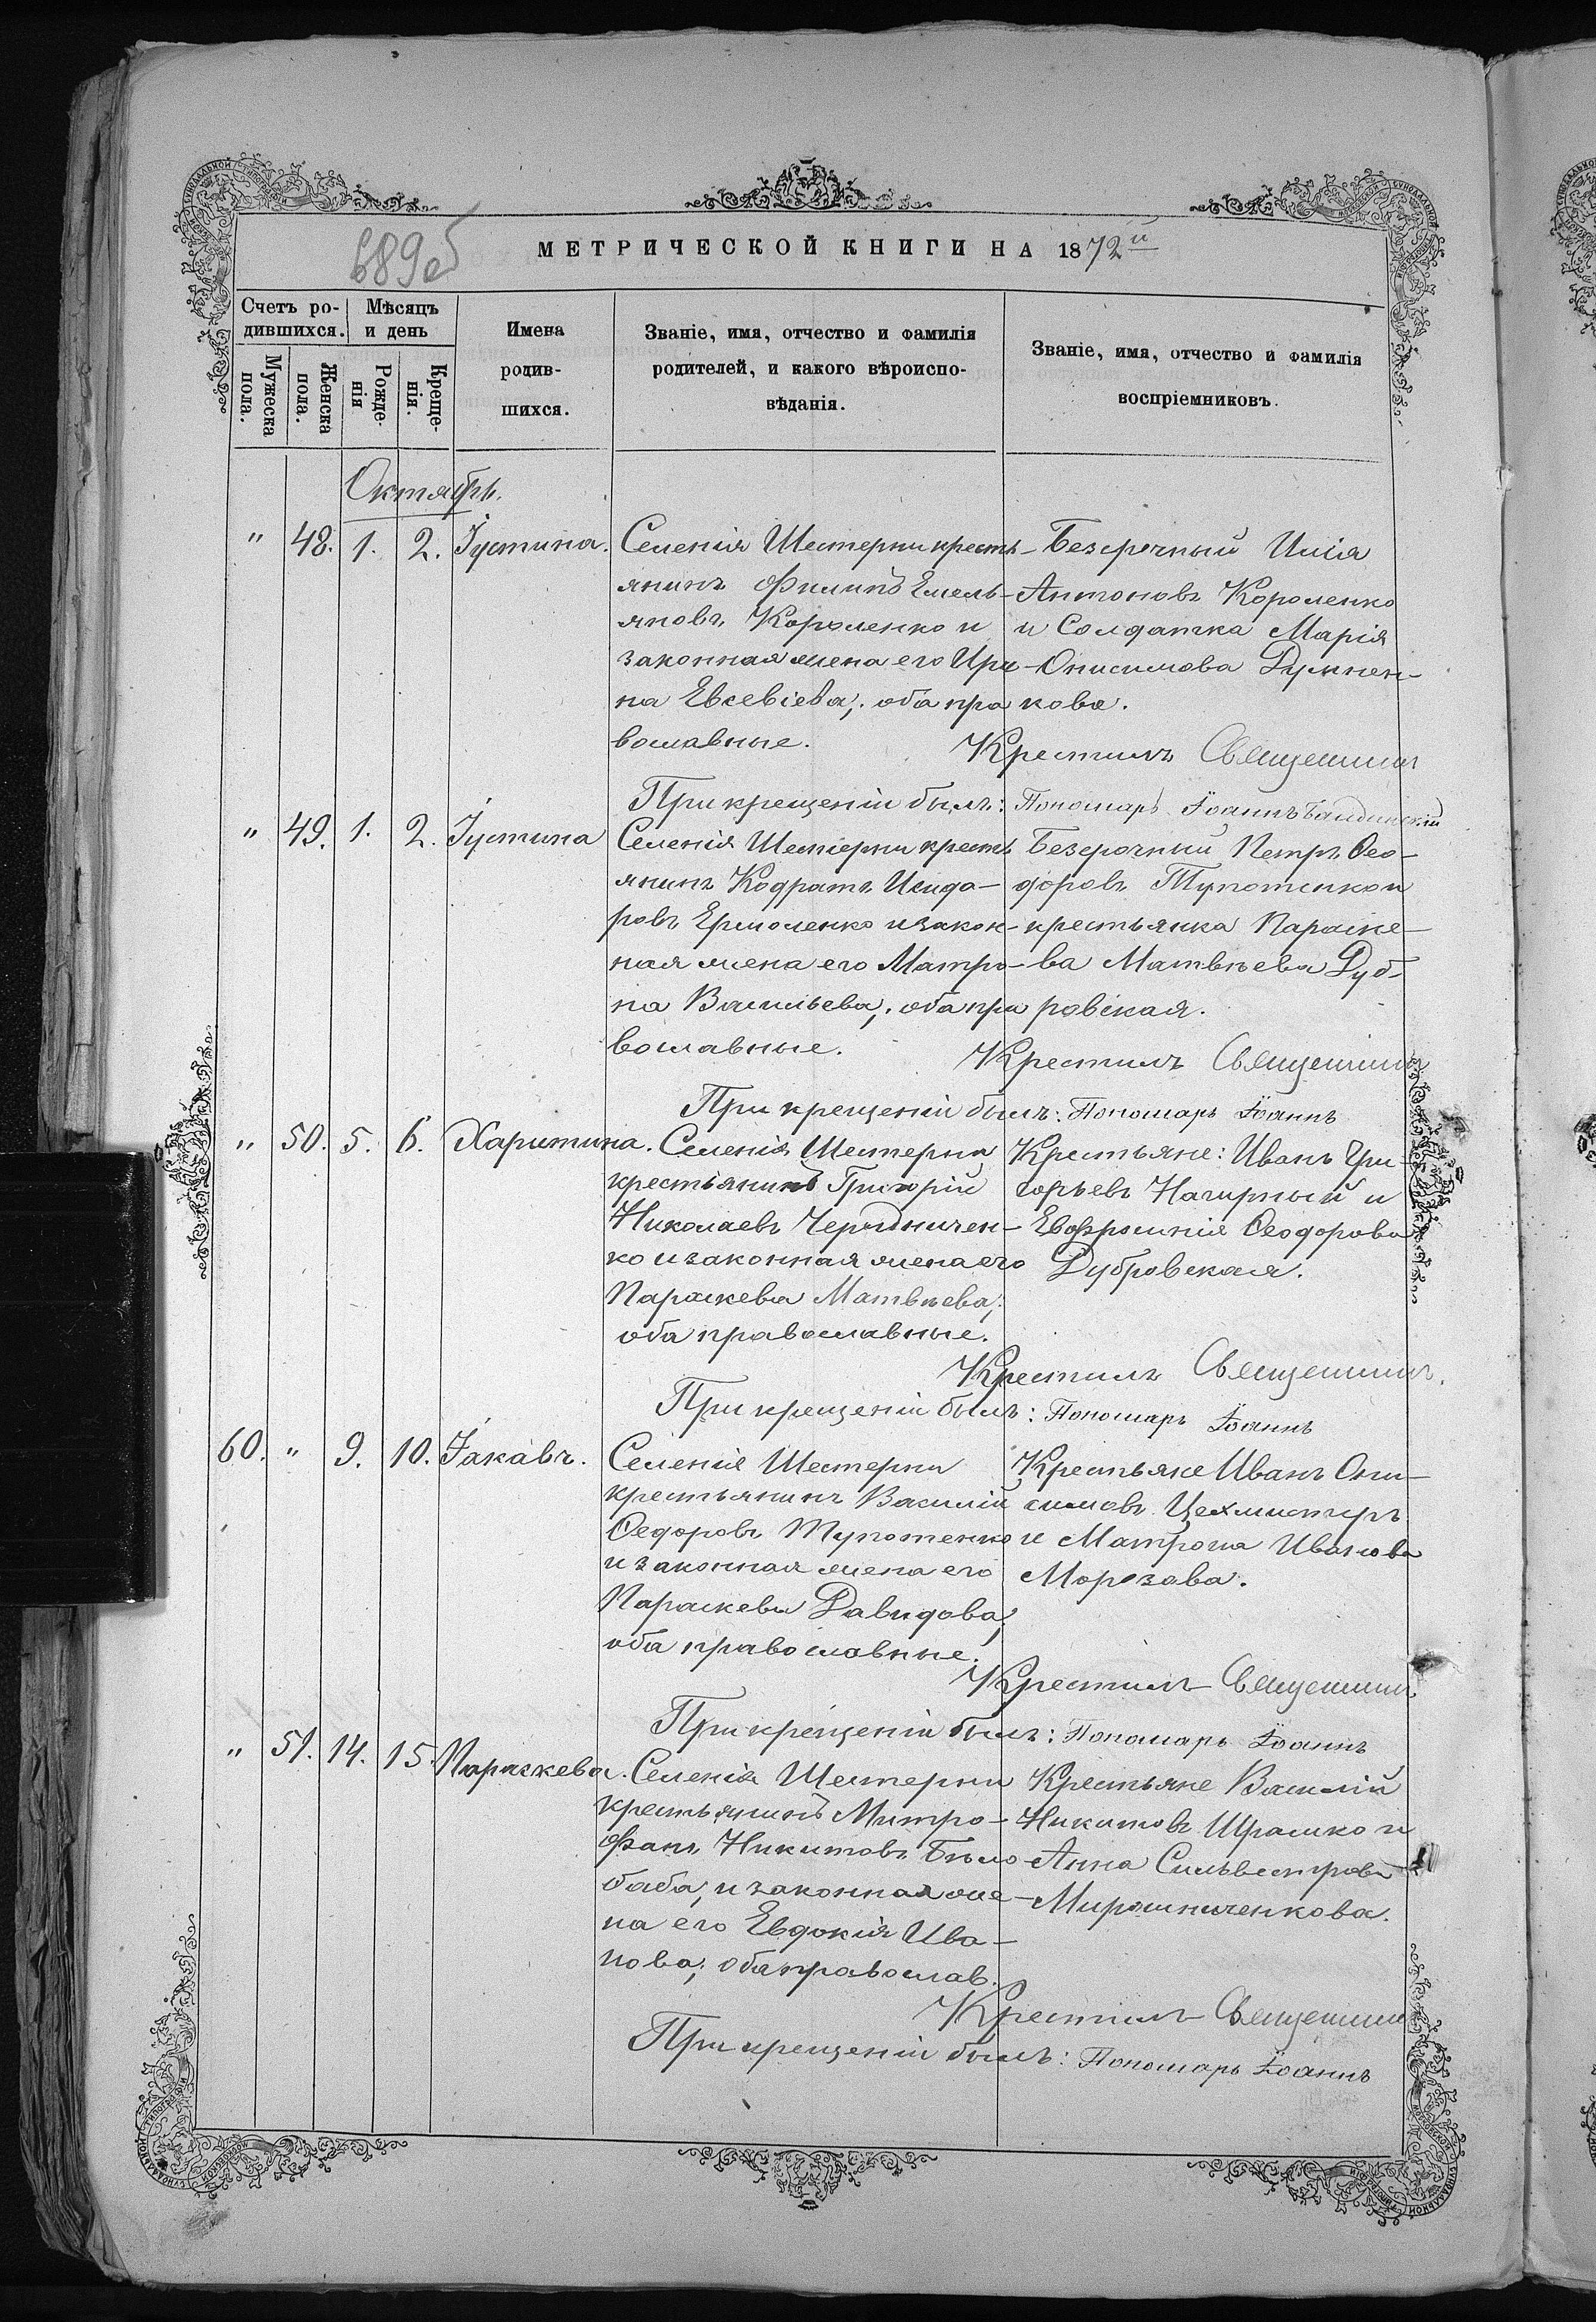 689об
МЕТРИЧЕСКОЙ КНИГИ НА 1872й
Счетъ ро-
дившихся.
Мѣсяцъ
и день
Мужеска
пола.
Женска
пола.
Рожде-
нія
Креще-
нія.
Имена
родив-
шихся.
Званіе, имя, отчество и фамилія
родителей, и какого вѣроиспо-
вѣданія.
Званіе, имя, отчество и фамилія
воспріемниковъ.
Октябрь.
" 48. 1. 2. Іустина.
Селенія Шестерни кресть-
янинъ Филипъ Емель-
яновъ Короленко и
законная жена его Ири-
на Евсевіева; оба пра
вославные.
Безсрочный Илія
Антоновъ Короленко
и Солдатка Марія
Онисимова Думнен-
кова.
Крестилъ Священникъ
При крещеніи былъ: Пономарь Іоаннъ
" 49. 1. 2. Іустина
Селенія Шестерни кресть
янинъ Кодратъ Исидо-
ровъ Ермоленко и закон-
ная жена его Матро-
на Васильева; оба пра
вославные.
Безсрочный Петръ Ѳео-
доровъ Тупотенко и
крестьянка Параске-
ва Матвѣева Дуб-
ровская.
Крестилъ Священникъ
При крещеніи былъ: Пономарь Іоаннъ
" 50. 5. 6. Харитина.
Селенія Шестерни
крестьянинъ Григорій
Николаевъ Чередничен-
ко и законная жена его
Параскева Матвѣева;
оба православные.
Крестьяне: Иванъ Гри-
горьевъ Нагирный и
Евфросинія Ѳеодорова
Дубровская.
Крестилъ Священникъ.
При крещеніи былъ: Пономарь Іоаннъ
60. " 9. 10. Іаковъ.
Селенія Шестерни
крестьянинъ Василій
Ѳедоровъ Тупотенко
и законная жена его
Параскева Давидова;
оба православные.
Крестьяне Иванъ Они-
симовъ Цехмистръ
и Матрона Иванова
Морозова.
Крестилъ Священникъ
При крещеніи былъ: Пономарь Іоаннъ
" 51. 14. 15. Параскева.
Селенія Шестерни
крестьянинъ Митро-
фанъ Никитовъ Бѣло
баба, и законная же-
на его Евдокія Ива-
нова; оба православ.
Крестьяне Василій
Никитовъ Ирашко и
Анна Сильвестрова
Мирошниченкова.
Крестилъ Священникъ
При крещеніи былъ: Пономарь Іоаннъ